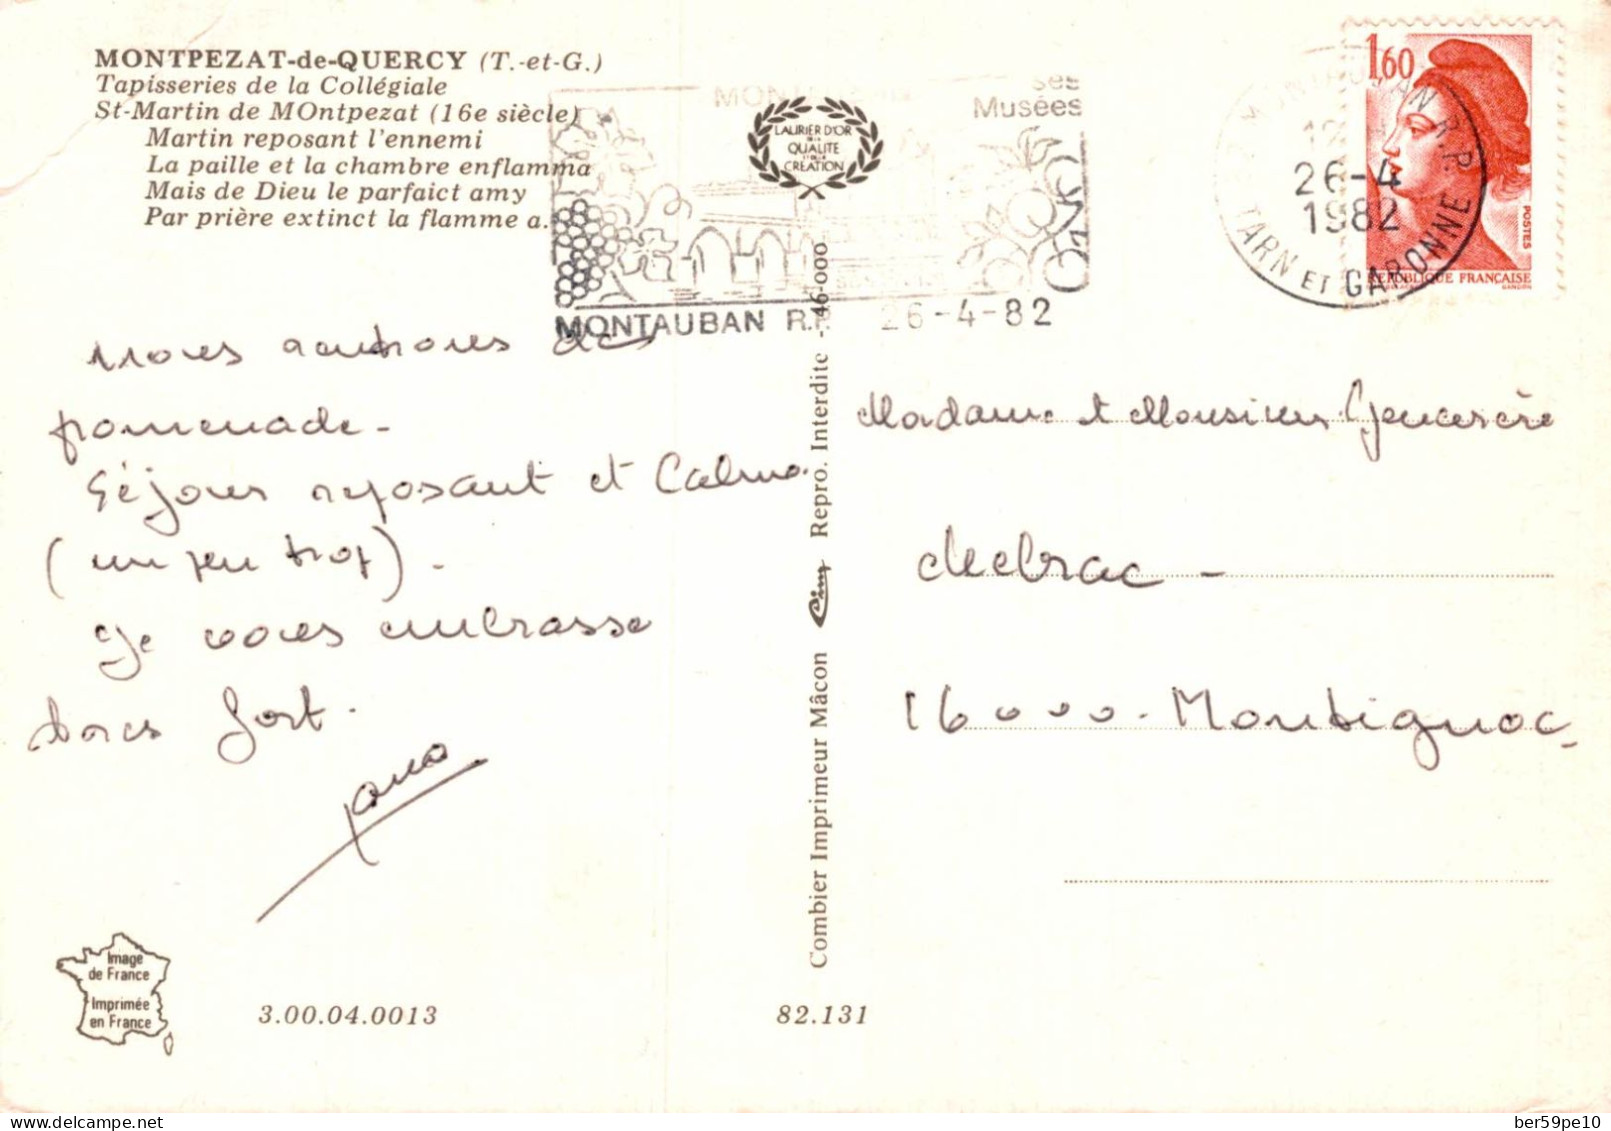 MONTPEZAT-de-QUERCY (T.-et-G.)
Tapisseries de la Collégiale
St-Martin de MOntpezat (16e siècle)
Martin reposant l'ennemi
La paille et la chambre enflamma
Mais de Dieu le parfaict amy
Par prière extinct la flamme a.
ses
Musées
LAURIER D'OR
DE LA
QUALITE
ET DE LA
CREATION
MONTAUBAN R.P. 26-4-82
1,60
POSTES
REPUBLIQUE FRANÇAISE
GANDON
MONTAUBAN R.P.
26-4
1982
TARN ET GARONNE
Nous rentrons de
promenade-
Séjour reposant et Calme
(un peu trop).
Je vous embrasse
tous fort.
Madame et Monsieur
16000. Montignac
Combier Imprimeur Mâcon Cim Repro. Interdite - 46-000
Image
de France
Imprimée
en France
3.00.04.0013
82.131
delcampe.net
ber59pe10